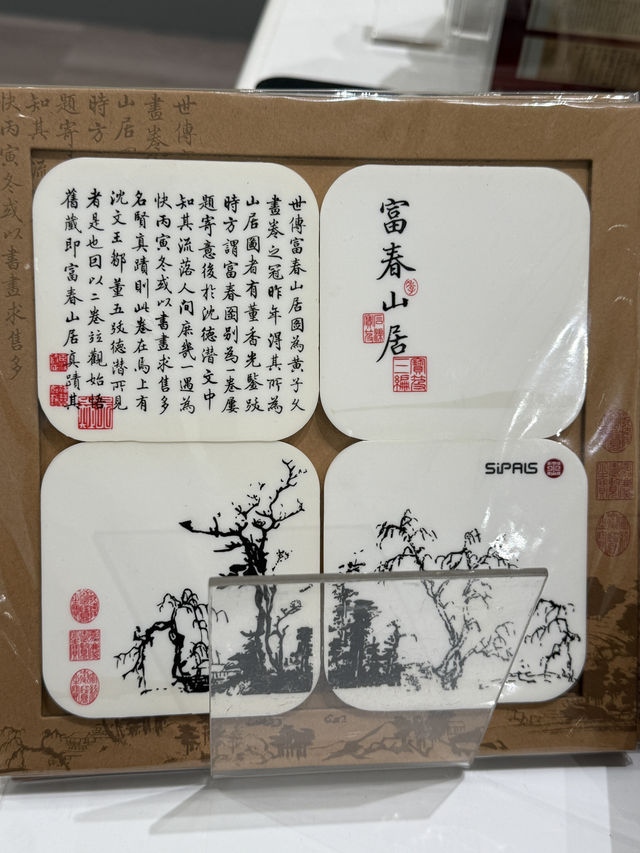 世傳富春山居圖為黃子久
畫卷之冠昨年得其所為
山居圖者有董香光鑒跋
時方謂富春圖別為一卷屢
題寄意後於沈德潛文中
知其流落人間庶幾一遇為
快丙寅冬或以書畫求售多
名賢真蹟則此卷在焉上有
沈文王鄒董五跋德潛所見
者是也因以二卷並觀始悟
舊藏即富春山居真蹟其
富春山居
寶笈
三編
SiPALS
世傳
畫卷
山居
時方
題寄
知其流
快丙寅冬或以書畫求售多